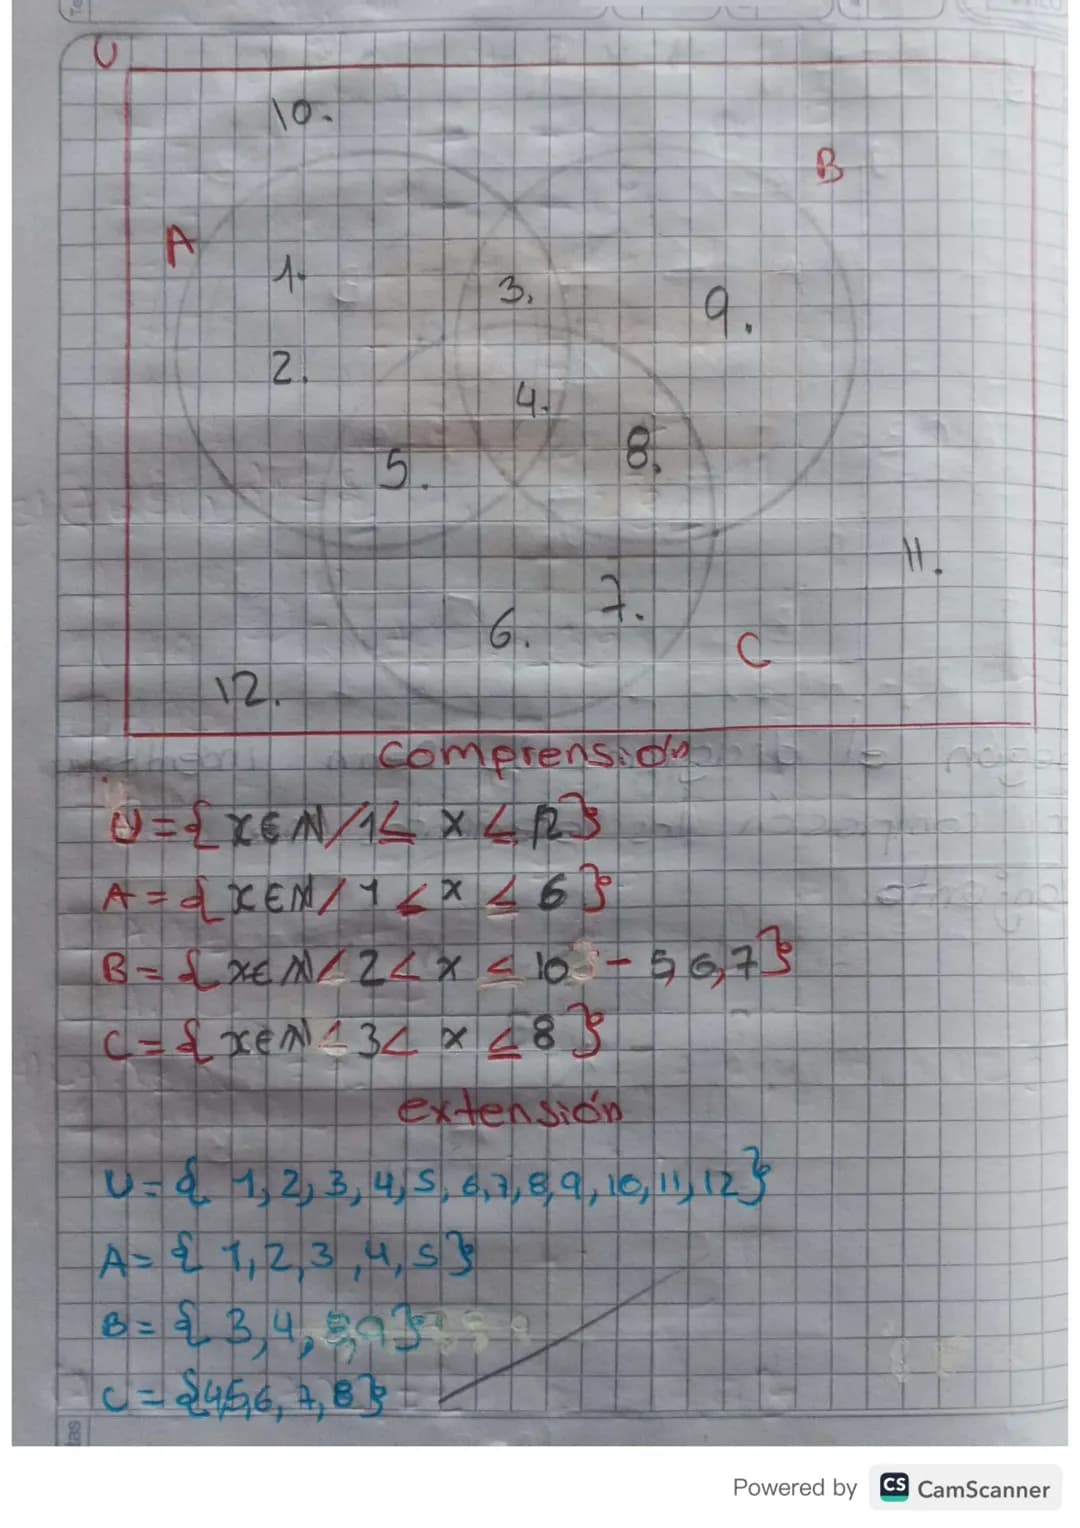 U
10.
B
A
1.
3.
9.
2.
4.
8.
5.
11.
7.
6.
C
12.
comprensión
U={ x∈N/1≤ x ≤ 12}
A={x∈N/ 1 ≤ x ≤ 6}
B={x∈N/ 2< x ≤ 10 - 5,6,7}
C={x∈N ≤ 3< x ≤ 8}
extensión
U={ 1,2,3,4,5,6,7,8,9,10,11,12}
A={ 1,2,3,4,5}
B={ 3,4,8,9}
C={4,5,6,7,8}
Powered by CS CamScanner